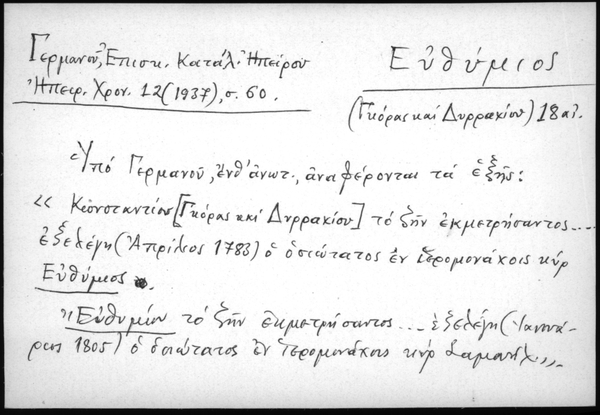 Γερμανοῦ, Ἐπισκ. Κατάλ. Ἠπείρου
Ἠπειρ. Χρον. 12(1937), σ. 60.
Εὐθύμιος
(Γκόρας καί Δυρραχίου) 18 αἰ.
Ὑπό Γερμανοῦ, ἔνθ' ἄνωτ., ἀναφέρονται τά ἑξῆς:
« Κωνσταντίου [Γκόρας καί Δυρραχίου] τό ζῆν ἐκμετρήσαντος....
ἐξελέγη (Ἀπρίλιος 1783) ὁ ὁσιώτατος ἐν ἱερομονάχοις κύρ
Εὐθύμιος.
"Εὐθυμίου τό ζῆν ἐκμετρήσαντος... ἐξελέγη (Ἰαννουά-
ριος 1805) ὁ ὁσιώτατος ἐν ἱερομονάχοις κύρ Σαμουήλ",,.